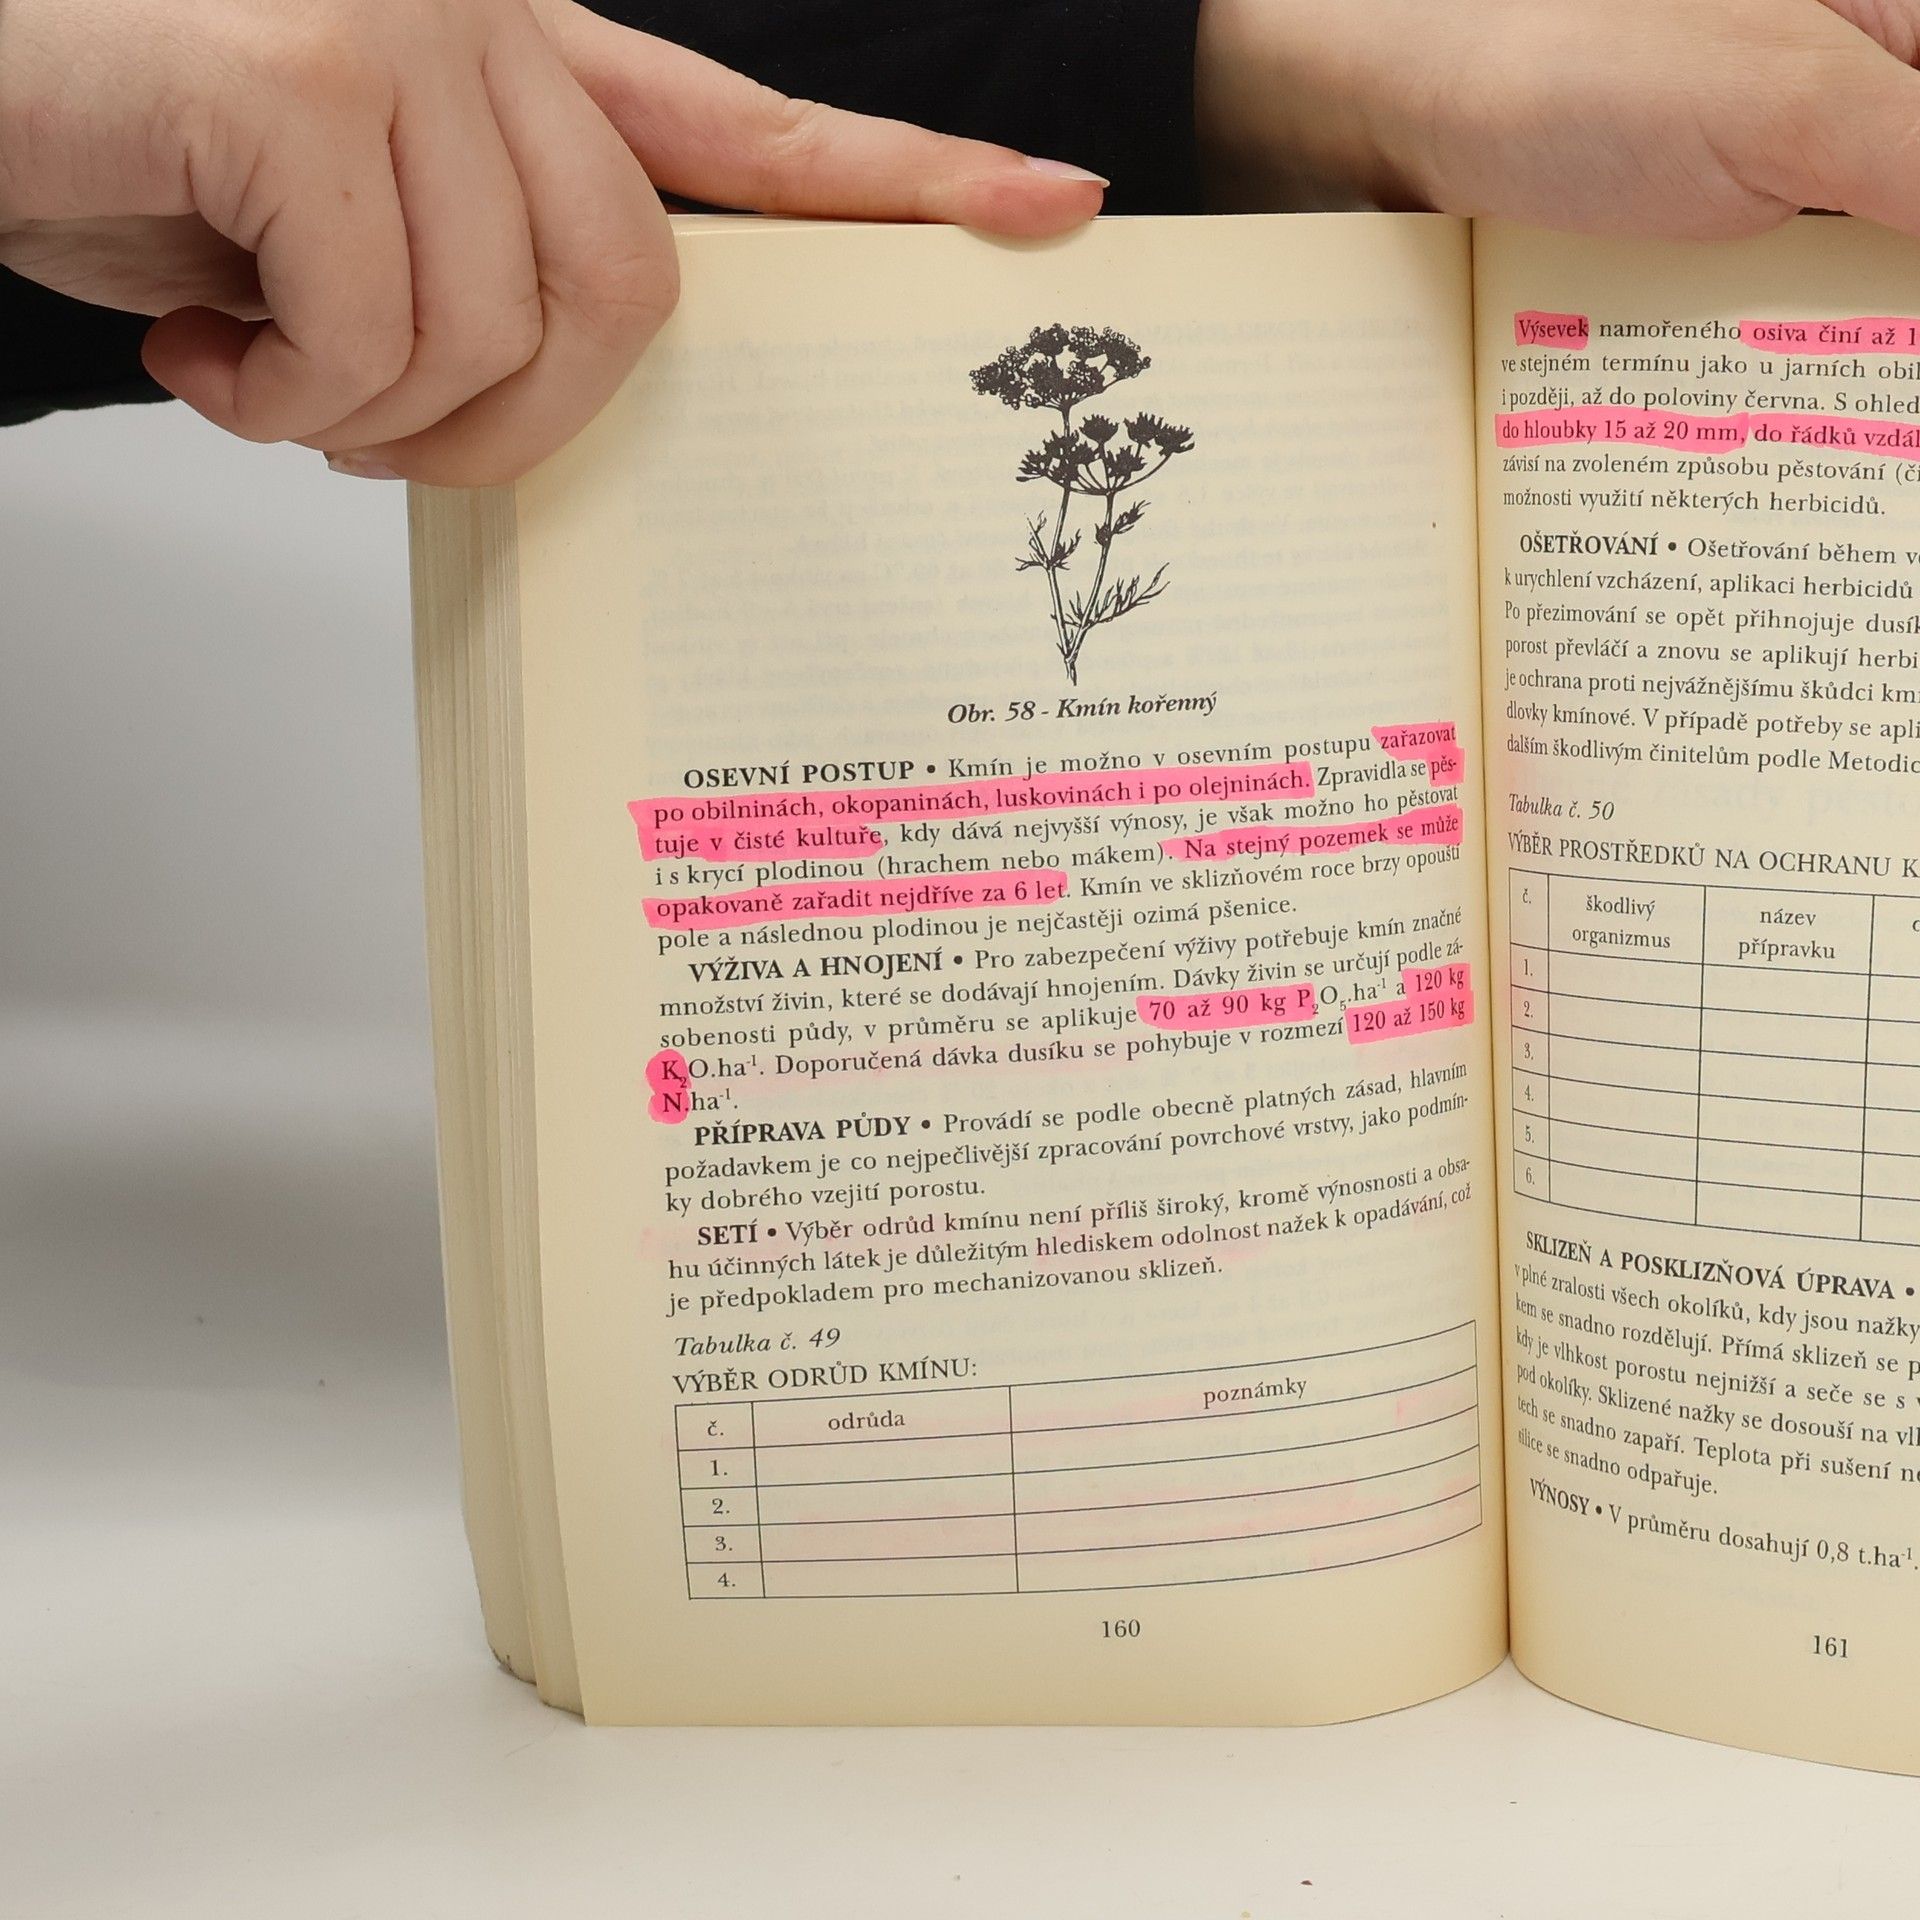 Obr. 58 - Kmín kořenný
OSEVNÍ POSTUP • Kmín je možno v osevním postupu zařazovat
po obilninách, okopaninách, luskovinách i po olejninách. Zpravidla se pěs-
tuje v čisté kultuře, kdy dává nejvyšší výnosy, je však možno ho pěstovat
i s krycí plodinou (hrachem nebo mákem). Na stejný pozemek se může
opakovaně zařadit nejdříve za 6 let. Kmín ve sklizňovém roce brzy opouští
pole a následnou plodinou je nejčastěji ozimá pšenice.
VÝŽIVA A HNOJENÍ • Pro zabezpečení výživy potřebuje kmín značné
množství živin, které se dodávají hnojením. Dávky živin se určují podle zá-
sobenosti půdy, v průměru se aplikuje 70 až 90 kg P₂O₅.ha⁻¹ a 120 kg
K₂O.ha⁻¹. Doporučená dávka dusíku se pohybuje v rozmezí 120 až 150 kg
N.ha⁻¹.
PŘÍPRAVA PŮDY • Provádí se podle obecně platných zásad, hlavním
požadavkem je co nejpečlivější zpracování povrchové vrstvy, jako podmín-
ky dobrého vzejití porostu.
SETÍ • Výběr odrůd kmínu není příliš široký, kromě výnosnosti a obsa-
hu účinných látek je důležitým hlediskem odolnost nažek k opadávání, což
je předpokladem pro mechanizovanou sklizeň.
Tabulka č. 49
VÝBĚR ODRŮD KMÍNU:
č. odrůda poznámky
1.
2.
3.
4.
160
Výsevek namořeného osiva činí až 1
ve stejném termínu jako u jarních obil
i později, až do poloviny června. S ohled
do hloubky 15 až 20 mm, do řádků vzdál
závisí na zvoleném způsobu pěstování (či
možnosti využití některých herbicidů.
OŠETŘOVÁNÍ • Ošetřování během ve
k urychlení vzcházení, aplikaci herbicidů
Po přezimování se opět přihnojuje dusík
porost převláčí a znovu se aplikují herbi
je ochrana proti nejvážnějšímu škůdci kmí
dlovky kmínové. V případě potřeby se apli
dalším škodlivým činitelům podle Metodic
Tabulka č. 50
VÝBĚR PROSTŘEDKŮ NA OCHRANU K
č. škodlivý organizmus název přípravku
1.
2.
3.
4.
5.
6.
SKLIZEŇ A POSKLIZŇOVÁ ÚPRAVA •
v plné zralosti všech okolíků, kdy jsou nažky
kem se snadno rozdělují. Přímá sklizeň se p
kdy je vlhkost porostu nejnižší a seče se s v
pod okolíky. Sklizené nažky se dosouší na vlh
tech se snadno zapaří. Teplota při sušení ne
silice se snadno odpařuje.
VÝNOSY • V průměru dosahují 0,8 t.ha⁻¹.
161